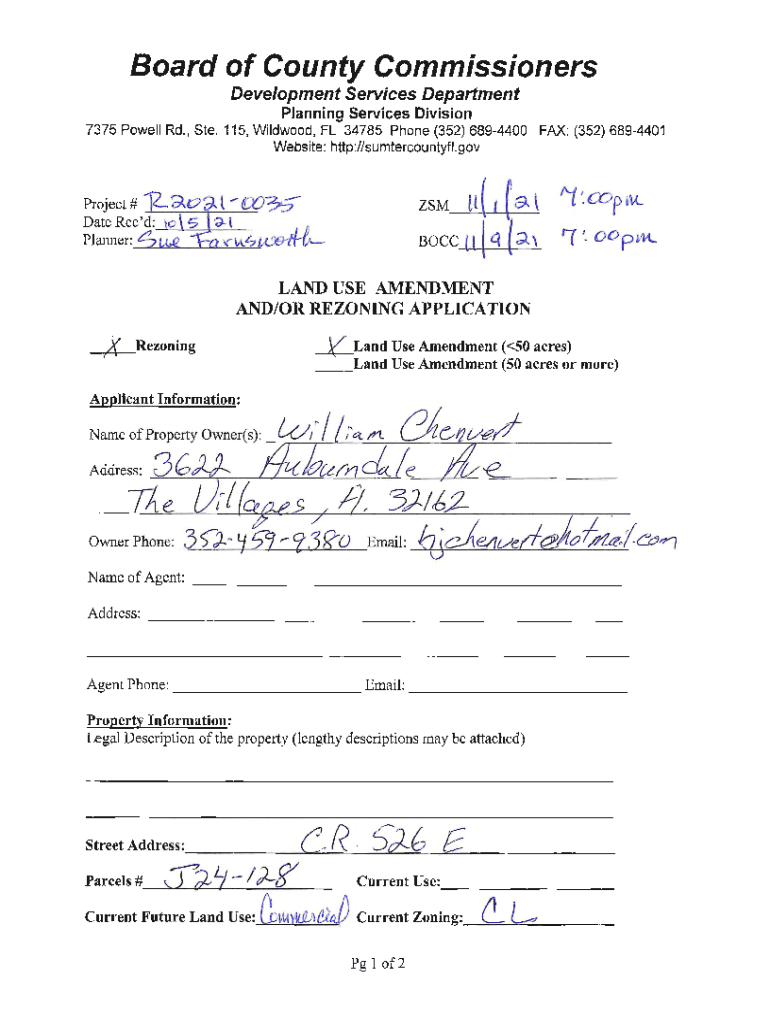 Board of County Commissioners
Development Services Department
Planning Services Division
7375 Powell Rd., Ste. 115, Wildwood, FL 34785 Phone (352) 689-4400 FAX: (352) 689-4401
Website: http://sumtercountyfl.gov
Project # R2021-0035 ZSM 11/1/21 7:00pm
Date Rec'd: 10/5/21
Planner: Sue Farnsworth BOCC 11/9/21 7:00pm
LAND USE AMENDMENT
AND/OR REZONING APPLICATION
X Rezoning X Land Use Amendment (<50 acres)
Land Use Amendment (50 acres or more)
Applicant Information:
Name of Property Owner(s): William Chenvert
Address: 3622 Auburndale Ave
The Villages, Fl. 32162
Owner Phone: 352-459-9380 Email: bjchenvert@hotmail.com
Name of Agent:
Address:
Agent Phone: Email:
Property Information:
Legal Description of the property (lengthy descriptions may be attached)
Street Address: C.R. 526 E
Parcels # J24-128 Current Use:
Current Future Land Use: Commercial Current Zoning: CL
Pg 1 of 2